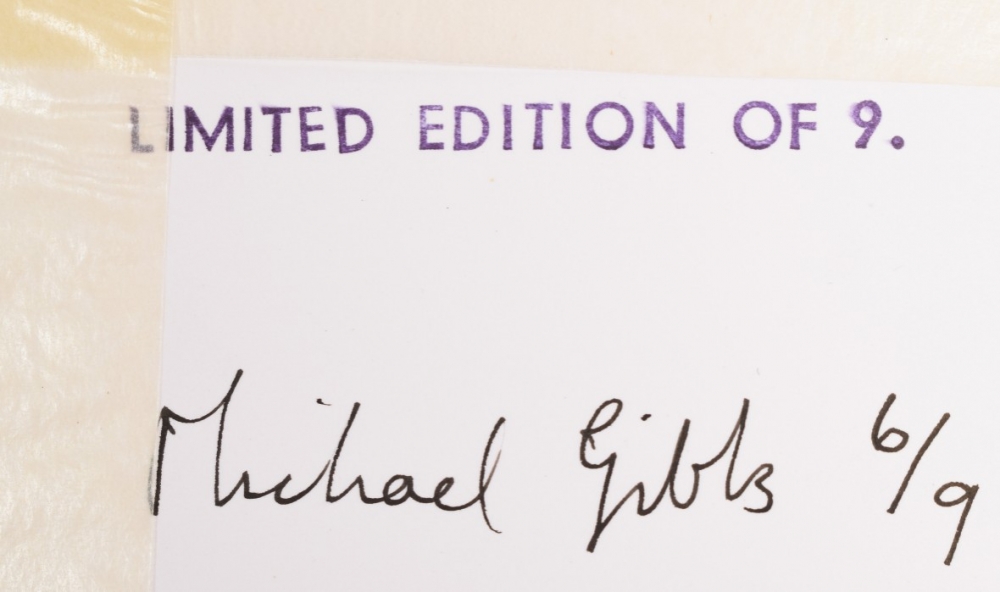 LIMITED EDITION OF 9.
Michael Gibbs 6/9